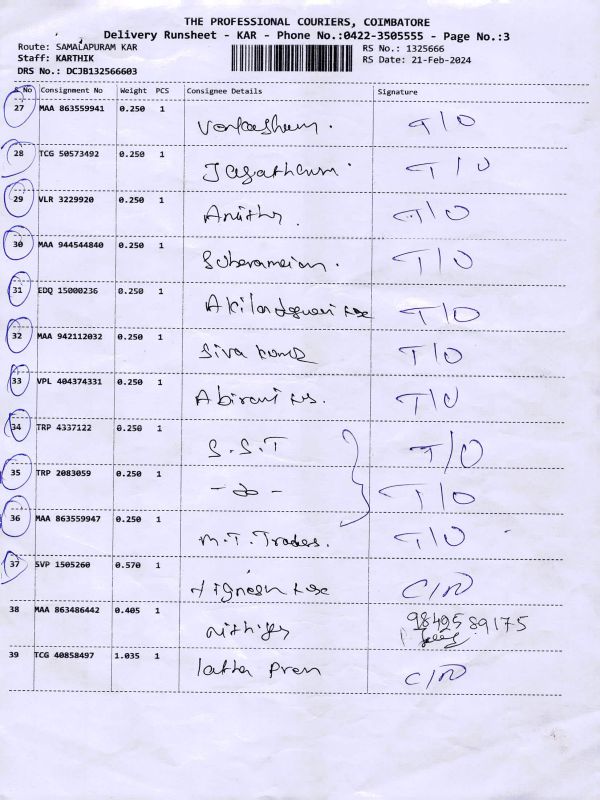 THE PROFESSIONAL COURIERS, COIMBATORE
Delivery Runsheet - KAR - Phone No.:0422-3505555 - Page No.:3
Route: SAMALAPURAM KAR RS No.: 1325666
Staff: KARTHIK RS Date: 21-Feb-2024
DRS No.: DCJB132566603
S No Consignment No Weight PCS Consignee Details Signature
27 MAA 863559941 0.250 1 T/O
28 TCG 50573492 0.250 1 T/O
29 VLR 3229920 0.250 1 T/O
30 MAA 944544840 0.250 1 T/O
31 EDQ 15000236 0.250 1 T/O
32 MAA 942112032 0.250 1 Siva T/O
33 VPL 404374331 0.250 1 Abirami T/O
34 TRP 4337122 0.250 1 S.S.T T/O
35 TRP 2083059 0.250 1 T/O
36 MAA 863559947 0.250 1 M.T. Trades. T/O
37 SVP 1505260 0.570 1
38 MAA 863486442 0.405 1 9842589175
39 TCG 40858497 1.035 1 latha Prem